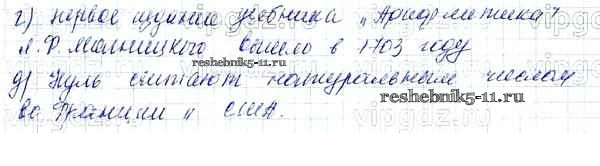 г) первое издание учебника „Арифметика"
Л. Ф. Магницкого вышло в 1703 году
reshebnik5-11.ru
д) Нуль считают натуральным числом
reshebnik5-11.ru
во Франции и США.
reshebnik5-11.ru